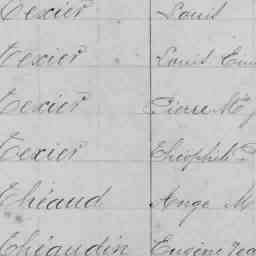 Texier Louis
Texier Louis
Texier Pierre
Texier Théophile
Théaud Ange M
Théaudin Eugène Jea